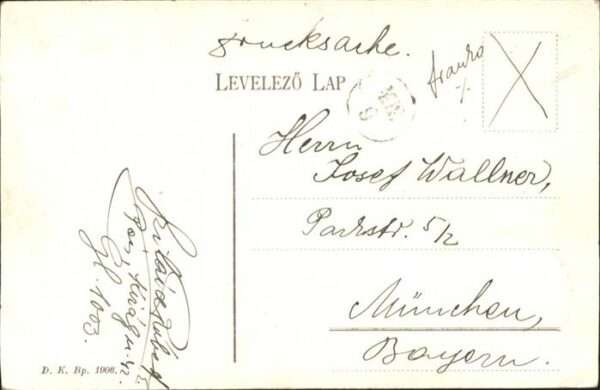 Drucksache.
franko
LEVELEZŐ LAP
Herrn
Josef Wallner,
Parkstr. 5/2
München,
Bayern.
1003.
D. K. Bp. 1906.